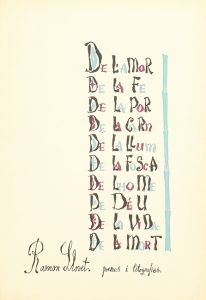 De l'amor
De la fe
De la por
De la carn
De la llum
De la fosca
De l'home
De Déu
De la vida
De la mort
Ramon Llovet. poemes i litografies.